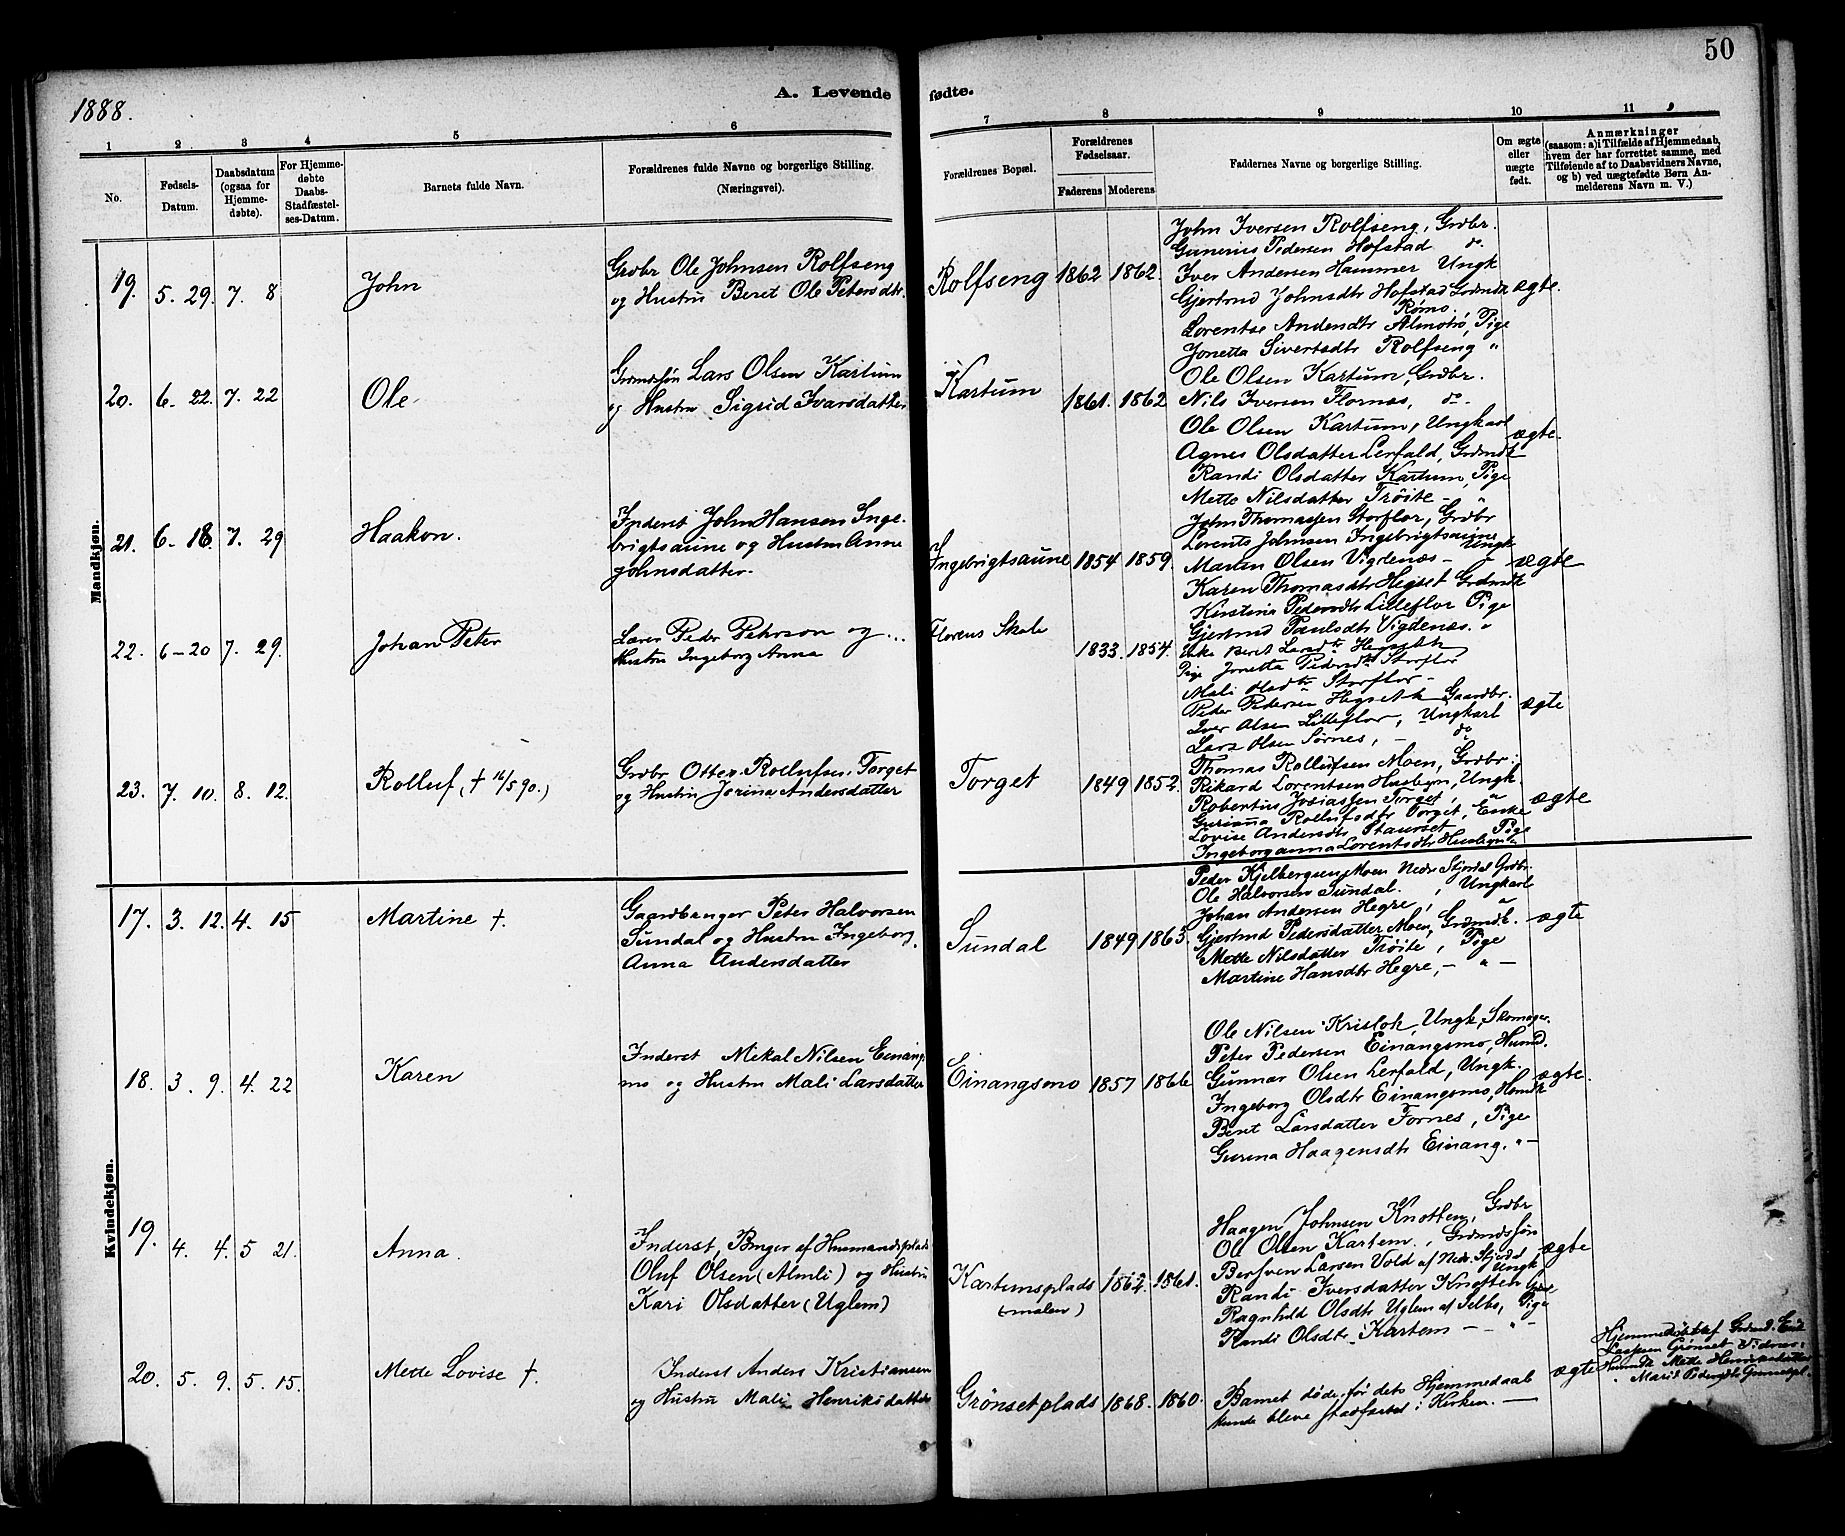 50
1888.
A. Levende fødte.
1 2 3 4 5 6 7 8 9 10 11
No.
Fødsels-Datum.
Daabsdatum (ogsaa for Hjemmedøbte).
For Hjemmedøbte Daabs-Stadfæstelses-Datum.
Barnets fulde Navn.
Forældrenes fulde Navne og borgerlige Stilling. (Næringsvei).
Forældrenes Bopæl.
Forældrenes Fødselsaar.
Faderens Moderens
Faddernes Navne og borgerlige Stilling.
Om ægte eller uægte født.
Anmærkninger
(saasom: a) i Tilfælde af Hjemmedaab,
hvem der har forrettet samme, med
Tilføiende af to Daabsvidners Navne,
og b) ved uægtefødte Børn Anmelderens Navn m. V.)
Mandkjøn.
19. 5. 29. 7. 8 John
Grdbr Ole Johnsen Rolfseng
og Hustru Beret Ole Petersdtr.
Rolfseng 1862 1862.
John Iversen Rolfseng, Grdbr.
Gunerius Pedersen Hofstad do.
Iver Andersen Hammer Ungk
Gjertrud Johnsdtr Hofstad Grdmdk
Rømo.
Lorentse Andersdtr Almotrø, Pige
Jonetta Sivertsdtr Rolfseng "
ægte.
20. 6- 22. 7. 22 Ole
Grdmdsøn Lars Olsen Kartum
og Hustru Sigrid Ivarsdatter
Kartum 1861. 1862
Ole Olsen Kartum, Grdbr.
Nils Iversen Flornæs, do-
Ole Olsen Kartum, Ungkarl
Agnes Olsdatter Lerfald, Grdmdk
Randi Olsdatter Kartum, Pige
Mette Nilsdatter Trøite - "
ægte.
21. 6- 18. 7. 29 Haakon.
Inderst John Hansen Inge-
brigtsaune og Hustru Anne
Johnsdatter.
Ingebrigtsaune 1854 1859.
John Thomassen Storflor, Grdbr
Lorents Johnsen Ingebrigtsaune
Ungk
Martin Olsen Vigdenæs - "
Karen Thomasdtr Hegset Grdmdk
Kirstina Pedersdtr Lilleflor Pige
Gjertrud Paulsdtr Vigdenæs. "
ægte
22. 6-20 7. 29. Johan Peter
Lærer Peder Pehrson og ...
Hustru Ingeborg Anna
Florens Skole 1833. 1854.
Enke Beret Larsdtr Hegseth
Pige Jonetta Pedersdtr Storflor
Mali Olsdtr Storflor -
Peder Pedersen Hegseth Gaardbr.
Iver Olsen Lilleflor, Ungkarl
Lars Olsen Sørnes, - do
ægte
23. 7. 10. 8. 12. Rolluf († 16/5 90.)
Grdbr Otter Rollufsen Torget
og Hustru Jorina Andersdatter
Torget 1849 1852.
Thomas Rollufsen Moen, Grdbr.
Rikard Lorentsen Husbyn, Ungk.
Robertus Josiassen Torget, "
Gurianna Rollufsdtr Torget, Enke
Lovise Andersdtr Staurset Pige
Ingeborganna Lorentsdtr Husbyn "
ægte
Kvindekjøn.
17. 3. 12. 4. 15 Martine †.
Gaardbruger Peter Halvorsen
Sundal og Hustru Ingeborg
Anna Andersdatter
Sundal 1849 1863.
Peder Kjelbergsen Moen Nedr Stjørdal Grdbr.
Ole Halvorsen Sundal. , Ungkarl
Johan Andersen Hegre, "
Gjertrud Pedersdatter Moen, Grdmdk.
Mette Nilsdatter Trøite, Pige
Martine Hansdtr Hegre, - " -
ægte
18. 3. 9. 4. 22 Karen
Inderst Mikal Nilsen Einangs
mo og Hustru Mali Larsdatter
Einangsmo 1857 1866
Ole Nilsen Krislok, Ungk, Skomager.
Peter Pedersen Einangsmo, Husmd.
Gunnar Olsen Lerfald, Ungk.
Ingeborg Olsdtr Einangsmo, Hsmdk
Beret Larsdatter Fornes, Pige
Gurina Haagensdtr Einang. "-
ægte.
19. 4. 4. 5 21. Anna.
Inderst, Bruger af Husmandsplads
Oluf Olsen (Almli) og Hustru
Kari Olsdatter (Uglem)
Kartumsplads 1862. 1861.
(malen)
Haagen Johnsen Knotten, Grdbr
Ole Olsen Kartem., Grdmdsøn
Berfven Larsen Vold af Nedr. Stjørdal Ungk
Randi Iversdatter Knotten Grk
Ragnhild Olsdtr Uglem af Selbo, Pige
Randi Olsdtr Kartem - - " -
ægte
20. 5. 9. 5. 15. Mette Lovise †.
Inderst Anders Kristiansen
og Hustru Mali Henriksdatter
Grönsetplads 1868. 1860.
Barnet døde før dets Hjemmedaab
kunde blive stadfæstet i Kirken. -
ægte
Hjemmedøbt af Grdmd.
Grønset Vidner:
Husmdk Mette Henriksdatter
" Marit Pedersdtr